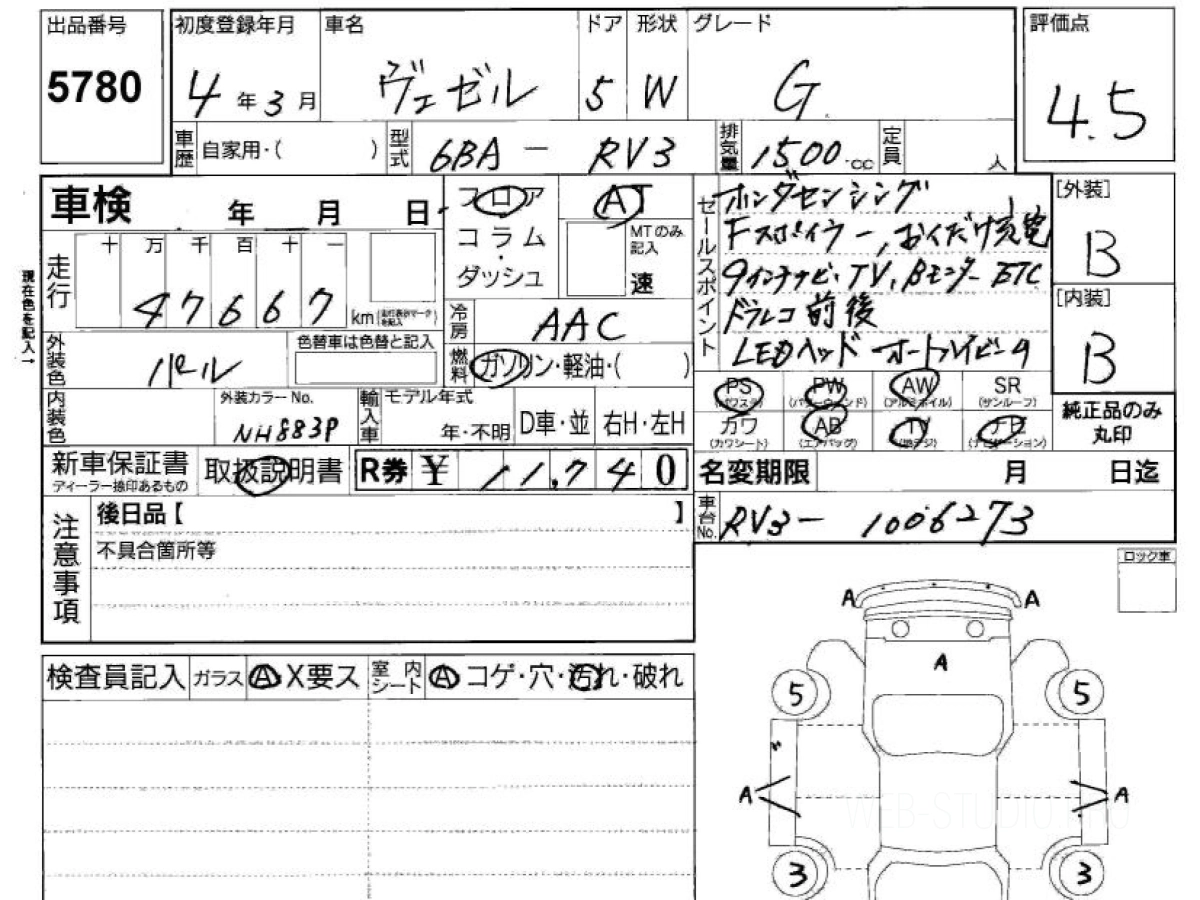 出品番号
5780
初度登録年月
4年3月
車名
ヴェゼル
ドア
5
形状
W
グレード
G
評価点
4.5
車歴
自家用・( )
型式
6BA - RV3
排気量
1500.cc
定員
人
車検
年 月 日
走行
十 万 千 百 十 一
4 7 6 6 7
km(走行表示マークを記入)
現在色を記入→
フロア
コラム
・
ダッシュ
AT
MTのみ記入
速
セールスポイント
ホンダセンシング
Fスポイラー,おくだけ充電
9インチナビ・TV、Bモニター ETC
ドラレコ前後
LEDヘッド オートハイビーム
[外装]
B
[内装]
B
冷房
AAC
外装色
パール
色替車は色替と記入
燃料
ガソリン・軽油・( )
内装色
外装カラー No.
NH883P
輸入車
モデル年式
年・不明
D車・並
右H・左H
PS
(パワステ)
PW
(パワーウィンド)
AW
(アルミホイル)
SR
(サンルーフ)
カワ
(カワシート)
AB
(エアバッグ)
TV
(地デジ)
ナビ
(ナビゲーション)
純正品のみ
丸印
新車保証書
ディーラー捺印あるもの
取扱説明書
R券 ¥ 11,740
名変期限
月 日迄
車台No.
RV3- 1006273
注意事項
後日品【 】
不具合箇所等
ロック車
検査員記入
ガラス
A X要ス
室内シート
A コゲ・穴・汚れ・破れ
A A
A
5 5
A A
3 3
WEB-STUDIO.PRO